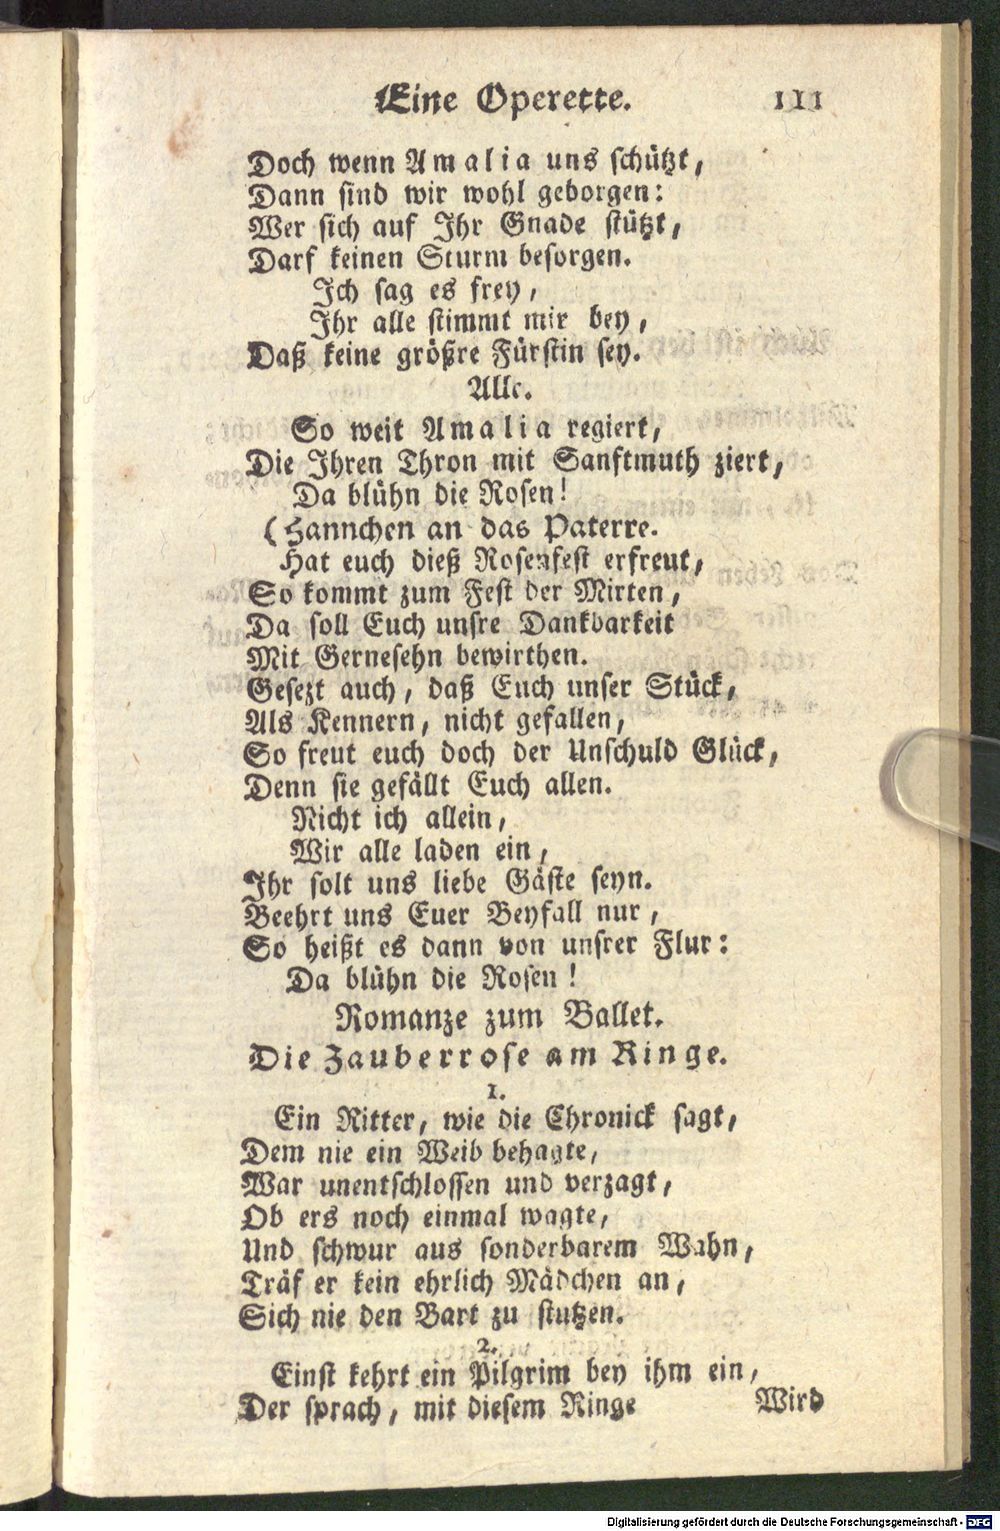 Eine Operette. 111
Doch wenn Amalia uns schützt,
Dann sind wir wohl geborgen:
Wer sich auf Ihr Gnade stützt,
Darf keinen Sturm besorgen.
Ich sag es frey,
Ihr alle stimmt mir bey,
Daß keine größre Fürstin sey.
Alle.
So weit Amalia regiert,
Die Ihren Thron mit Sanftmuth ziert,
Da blühn die Rosen!
(Hannchen an das Paterre.
Hat euch dieß Rosenfest erfreut,
So kommt zum Fest der Mirten,
Da soll Euch unsre Dankbarkeit
Mit Gernesehn bewirthen.
Gesezt auch, daß Euch unser Stück,
Als Kennern, nicht gefallen,
So freut euch doch der Unschuld Glück,
Denn sie gefällt Euch allen.
Nicht ich allein,
Wir alle laden ein,
Ihr solt uns liebe Gäste seyn.
Beehrt uns Euer Beyfall nur,
So heißt es dann von unsrer Flur:
Da blühn die Rosen!
Romanze zum Ballet.
Die Zauberrose am Ringe.
1.
Ein Ritter, wie die Chronick sagt,
Dem nie ein Weib behagte,
War unentschlossen und verzagt,
Ob ers noch einmal wagte,
Und schwur aus sonderbarem Wahn,
Träf er kein ehrlich Mädchen an,
Sich nie den Bart zu stutzen.
2.
Einst kehrt ein Pilgrim bey ihm ein,
Der sprach, mit diesem Ringe
Wird
Digitalisierung gefördert durch die Deutsche Forschungsgemeinschaft - DFG